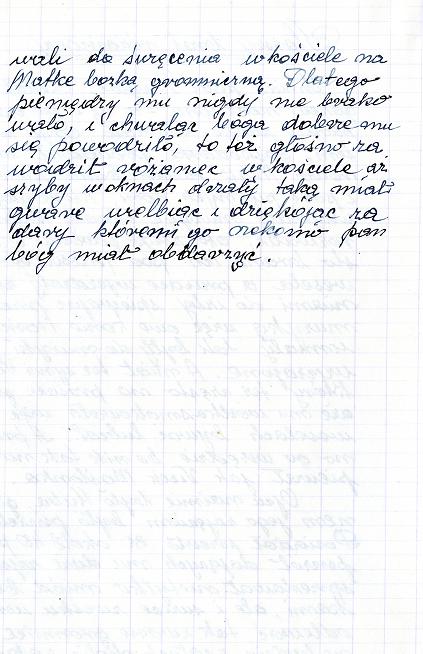 wali do święcenia w kościele na
Matke borką gromniczną. Dlatego
pieniędzy mu nigdy nie brako
wało, i chwaląc bóga dobrze mu
się powodziło, to też głośno za
wodził różaniec w kościele, aż
szyby w oknach drżały taką miał
gwarę wielbiąc i dziękójąc za
dary któremi go nekomo pan
bóg miał obdarzyć.